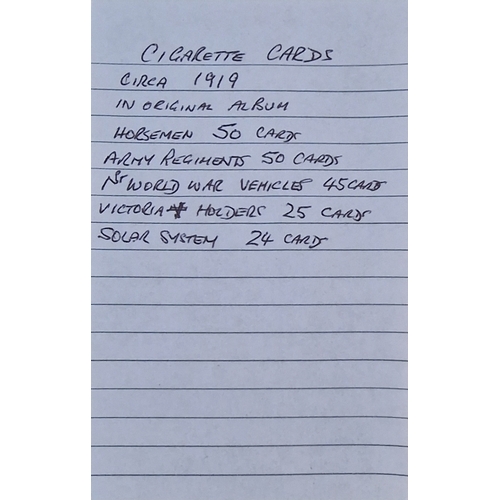 CIGARETTE CARDS
CIRCA 1919
IN ORIGINAL ALBUM
HORSEMEN 50 CARDS
ARMY REGIMENTS 50 CARDS
1ST WORLD WAR VEHICLES 45 CARDS
VICTORIA ✝ HOLDERS 25 CARDS
SOLAR SYSTEM 24 CARDS